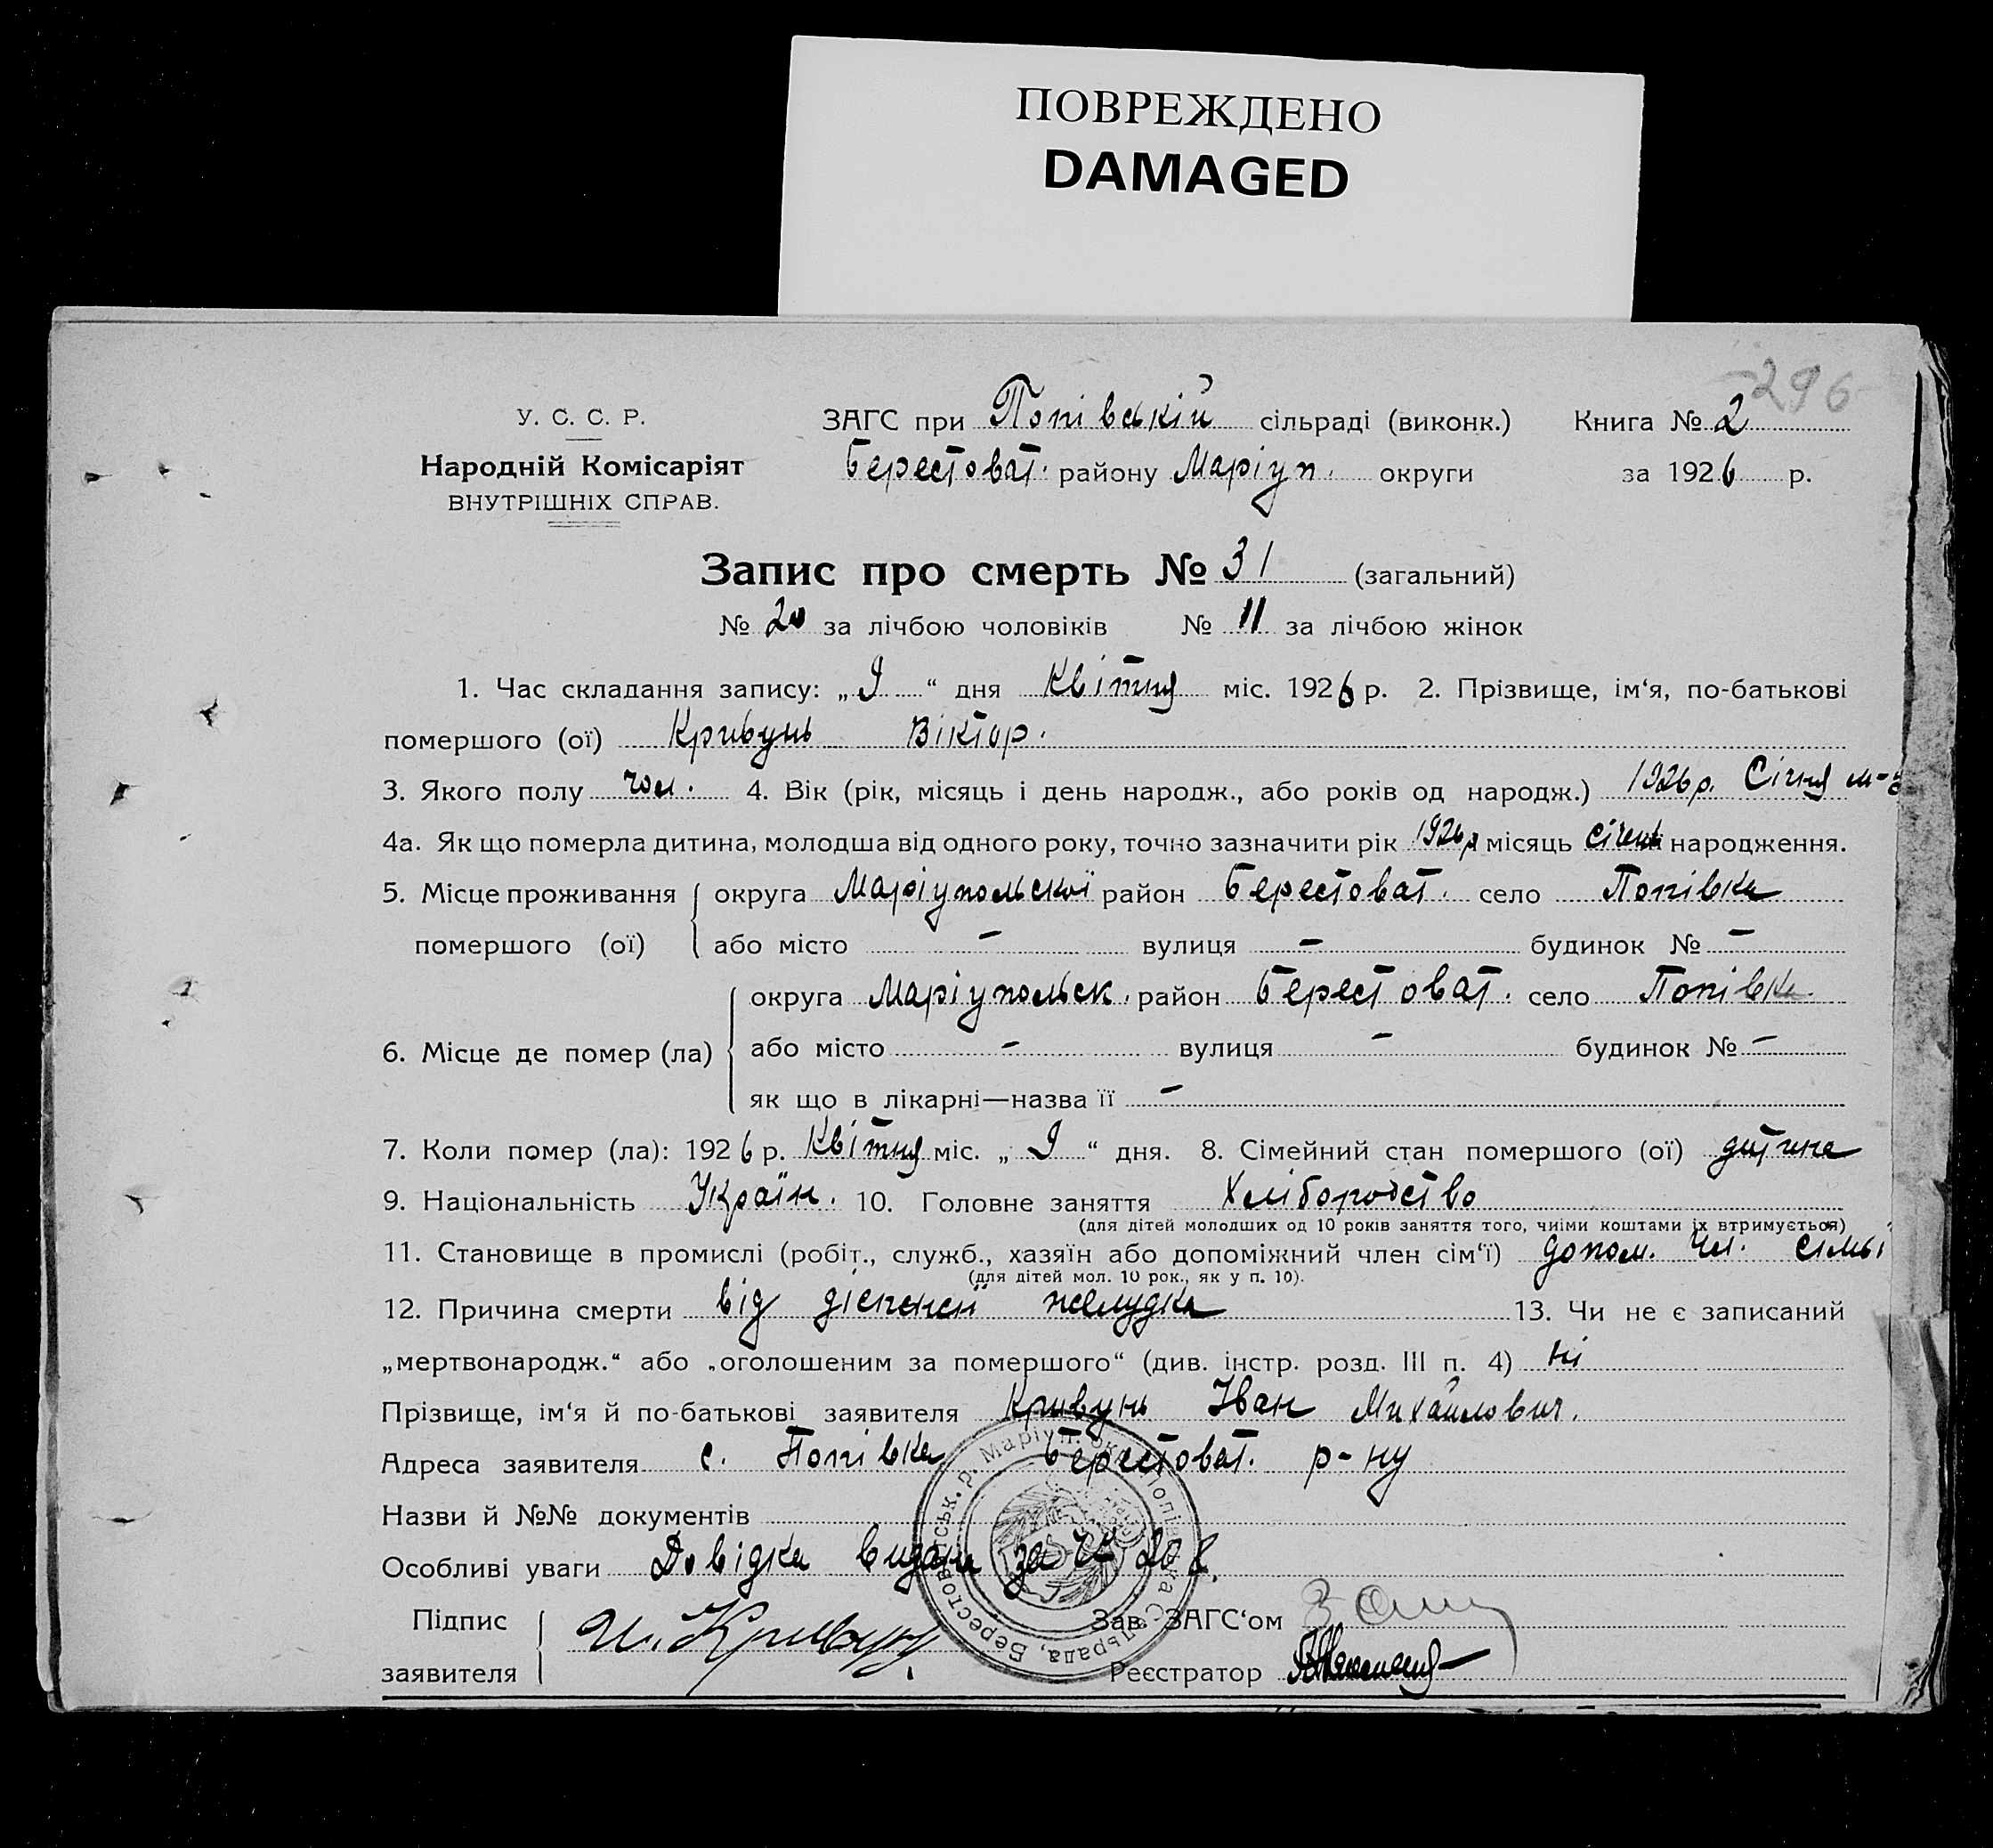 ПОВРЕЖДЕНО
DAMAGED
296
У. С. С. Р.
Народній Комісаріят
ВНУТРІШНІХ СПРАВ.
ЗАГС при Попівській сільраді (виконк.) Книга № 2
Берестоват. району Маріуп. округи за 1926 р.
Запис про смерть № 31 (загальний)
№ 20 за лічбою чоловіків № 11 за лічбою жінок
1. Час складання запису: „9“ дня Квітня міс. 1926 р. 2. Прізвище, ім‘я, по-батькові
помершого (ої) Кривунь Віктор.
3. Якого полу чол. 4. Вік (рік, місяць і день народж., або років од народж.) 1926 р. Січня м-ця
4а. Як що померла дитина, молодша від одного року, точно зазначити рік 1926 р місяць січень народження.
5. Місце проживання округа Маріупольскої район Берестоват. село Попівка
помершого (ої) або місто – вулиця – будинок № –
округа Маріупольск. район Берестоват. село Попівка
6. Місце де помер (ла) або місто – вулиця – будинок № –
як що в лікарні—назва її –
7. Коли помер (ла): 1926 р. Квітня міс. „9“ дня. 8. Сімейний стан помершого (ої) дитина
9. Національність Україн. 10. Головне заняття Хліборобство
(для дітей молодших од 10 років заняття того, чиїми коштами їх втримується)
11. Становище в промислі (робіт., служб., хазяїн або допоміжний член сім‘ї) допом. чл. сімьі
(для дітей мол. 10 рок., як у п. 10).
12. Причина смерти від желудка 13. Чи не є записаний
„мертвонародж.“ або „оголошеним за помершого“ (див. інстр. розд. III п. 4) ні
Прізвище, ім‘я й по-батькові заявителя Кривунь Іван Михайлович.
Адреса заявителя с. Попівка Берестоват. р-ну
Назви й №№ документів
Особливі уваги Довідка видана за № 208.
Підпис
заявителя И. Кривунь
Зав. ЗАГС‘ом
Реєстратор